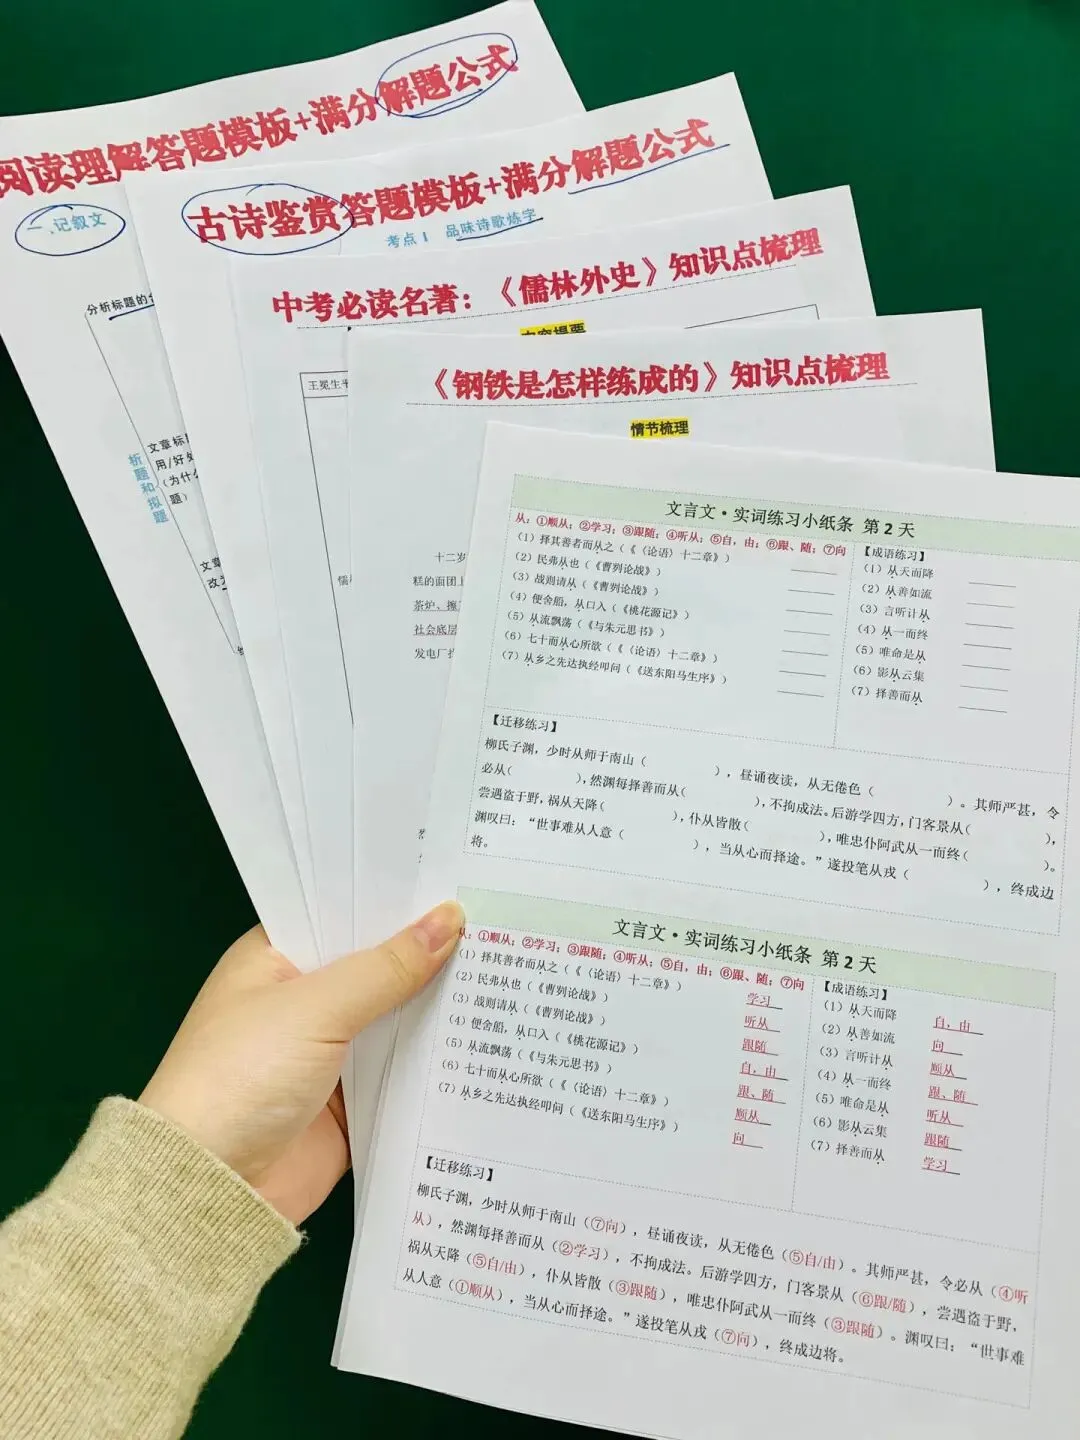 阅读理解答题模板+满分解题公式
一、记叙文
分析标题的
文章标
用/好处
（为什么
题）
析题和拟题
文章
改为
古诗鉴赏答题模板+满分解题公式
考点1 品味诗歌炼字
中考必读名著：《儒林外史》知识点梳理
内容提要
王冕生平
儒
《钢铁是怎样练成的》知识点梳理
情节梳理
十二岁
糕的面团上
茶炉、擦
社会底层
发电厂找
文言文·实词练习小纸条 第2天
从：①顺从；②学习；③跟随；④听从；⑤自，由；⑥跟、随；⑦向
（1）择其善者而从之（《〈论语〉十二章》）
（2）民弗从也（《曹刿论战》）
（3）战则请从（《曹刿论战》）
（4）便舍船，从口入（《桃花源记》）
（5）从流飘荡（《与朱元思书》）
（6）七十而从心所欲（《〈论语〉十二章》）
（7）从乡之先达执经叩问（《送东阳马生序》）
【成语练习】
（1）从天而降
（2）从善如流
（3）言听计从
（4）从一而终
（5）唯命是从
（6）影从云集
（7）择善而从
【迁移练习】
柳氏子渊，少时从师于南山（ ），昼诵夜读，从无倦色（ ）。其师严甚，令
必从（ ），然渊每择善而从（ ），不拘成法。后游学四方，门客景从（ ），
尝遇盗于野，祸从天降（ ），仆从皆散（ ），唯忠仆阿武从一而终（ ）。
渊叹曰：“世事难从人意（ ），当从心而择途。”遂投笔从戎（ ），终成边
将。
文言文·实词练习小纸条 第2天
从：①顺从；②学习；③跟随；④听从；⑤自，由；⑥跟、随；⑦向
（1）择其善者而从之（《〈论语〉十二章》） 学习
（2）民弗从也（《曹刿论战》） 听从
（3）战则请从（《曹刿论战》） 跟随
（4）便舍船，从口入（《桃花源记》） 自，由
（5）从流飘荡（《与朱元思书》） 跟、随
（6）七十而从心所欲（《〈论语〉十二章》） 顺从
（7）从乡之先达执经叩问（《送东阳马生序》） 向
【成语练习】
（1）从天而降 自，由
（2）从善如流 向
（3）言听计从 顺从
（4）从一而终 跟、随
（5）唯命是从 听从
（6）影从云集 跟随
（7）择善而从 学习
【迁移练习】
柳氏子渊，少时从师于南山（⑦向），昼诵夜读，从无倦色（⑤自/由）。其师严甚，令必从（④听
从），然渊每择善而从（②学习），不拘成法。后游学四方，门客景从（⑥跟/随），尝遇盗于野，
祸从天降（⑤自/由），仆从皆散（③跟随），唯忠仆阿武从一而终（③跟随）。渊叹曰：“世事难
从人意（①顺从），当从心而择途。”遂投笔从戎（⑦向），终成边将。